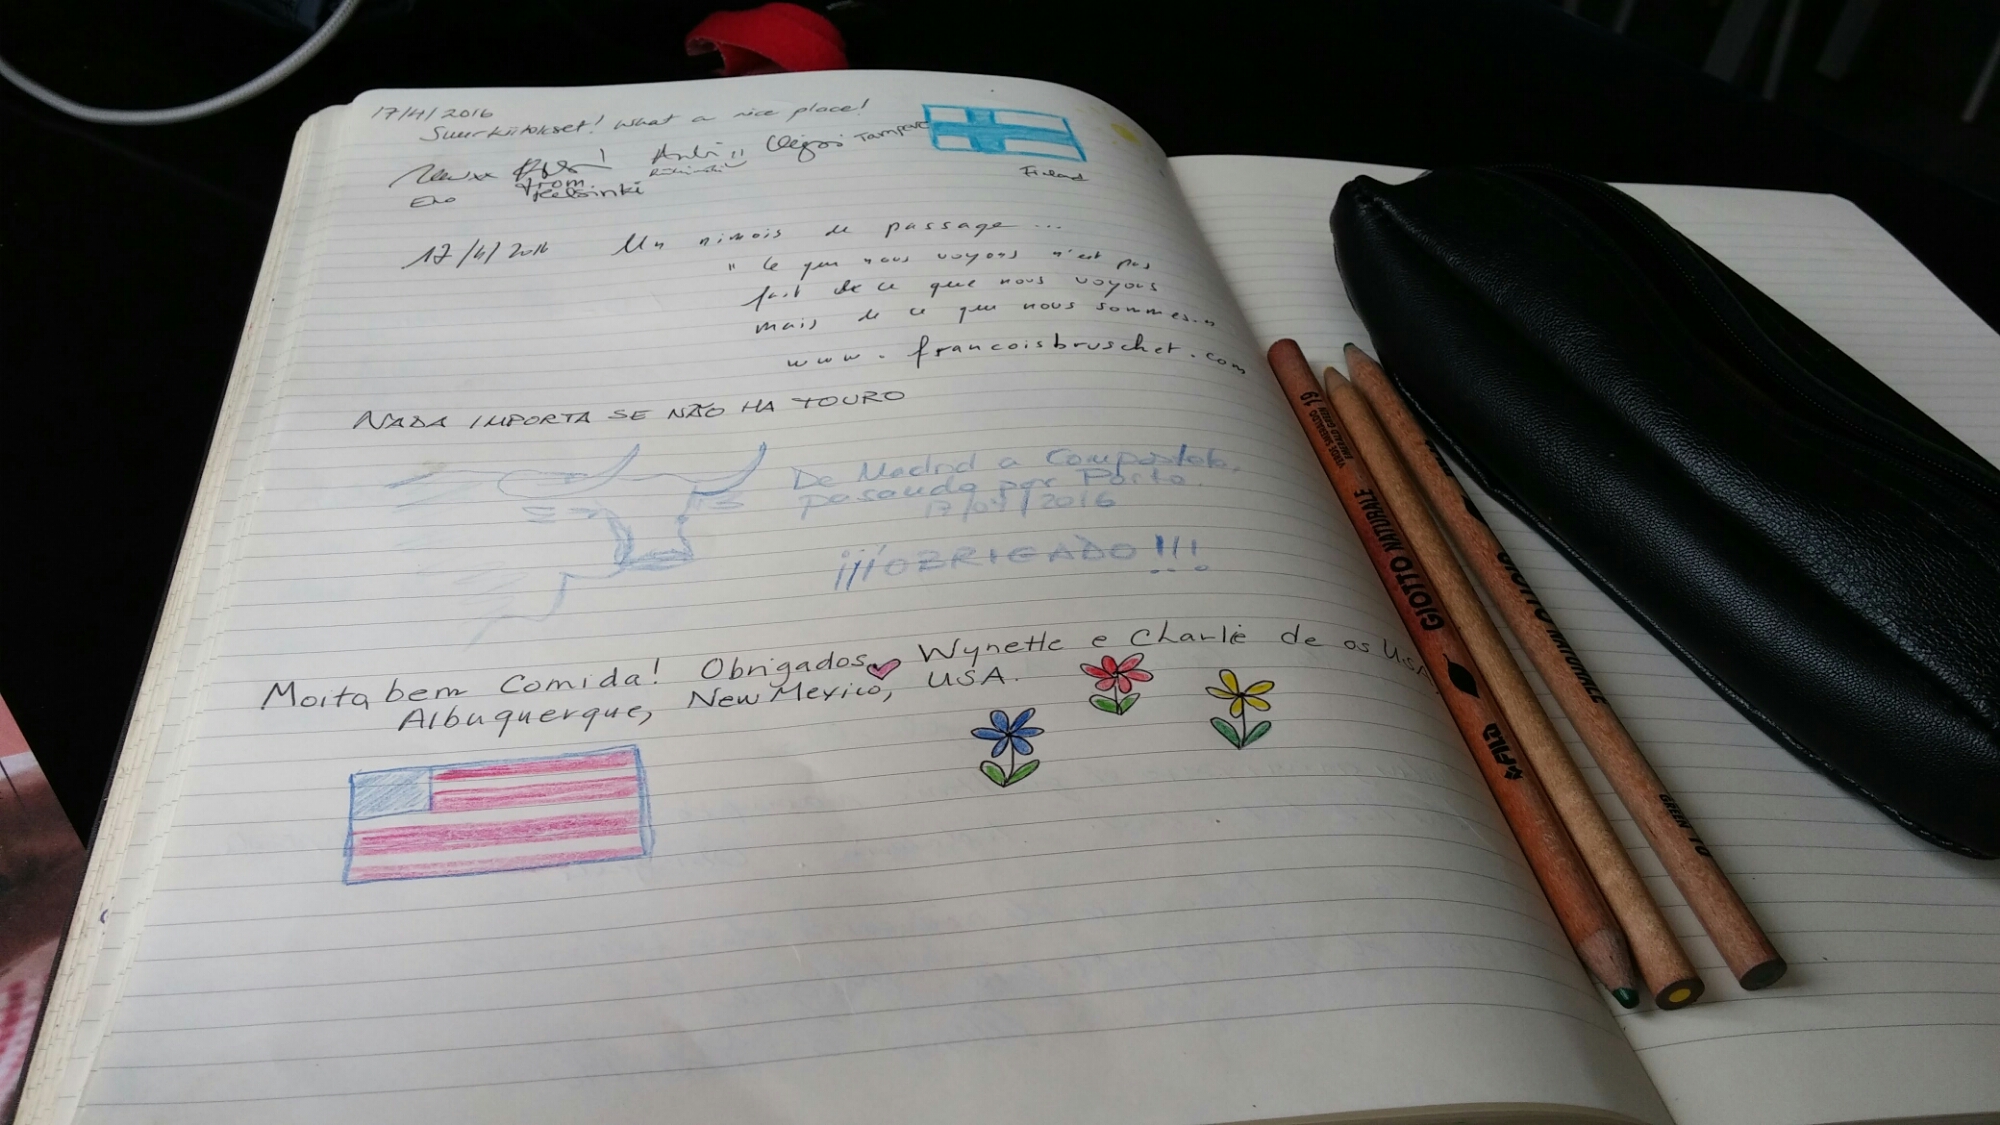 17/4/2016
Suurkiitokset! What a nice place!
Tampere
from
Helsinki
Finland
17/4/2016 Un nimois de passage...
" Ce que nous voyons n'est pas
fait de ce que nous voyons
mais de ce que nous sommes..."
www.francoisbruschet.com
NADA IMPORTA SE NÃO HA TOURO
De Madrid a Compostela,
pasando por Porto.
17/04/2016
¡¡¡OBRIGADO!!!
Moita bem Comida! Obrigados Wynette e Charlie de os USA
Albuquerque, New Mexico, USA.
19
VERDE SMERALDO
EMERALD GREEN
GIOTTO NATURALE
FILA